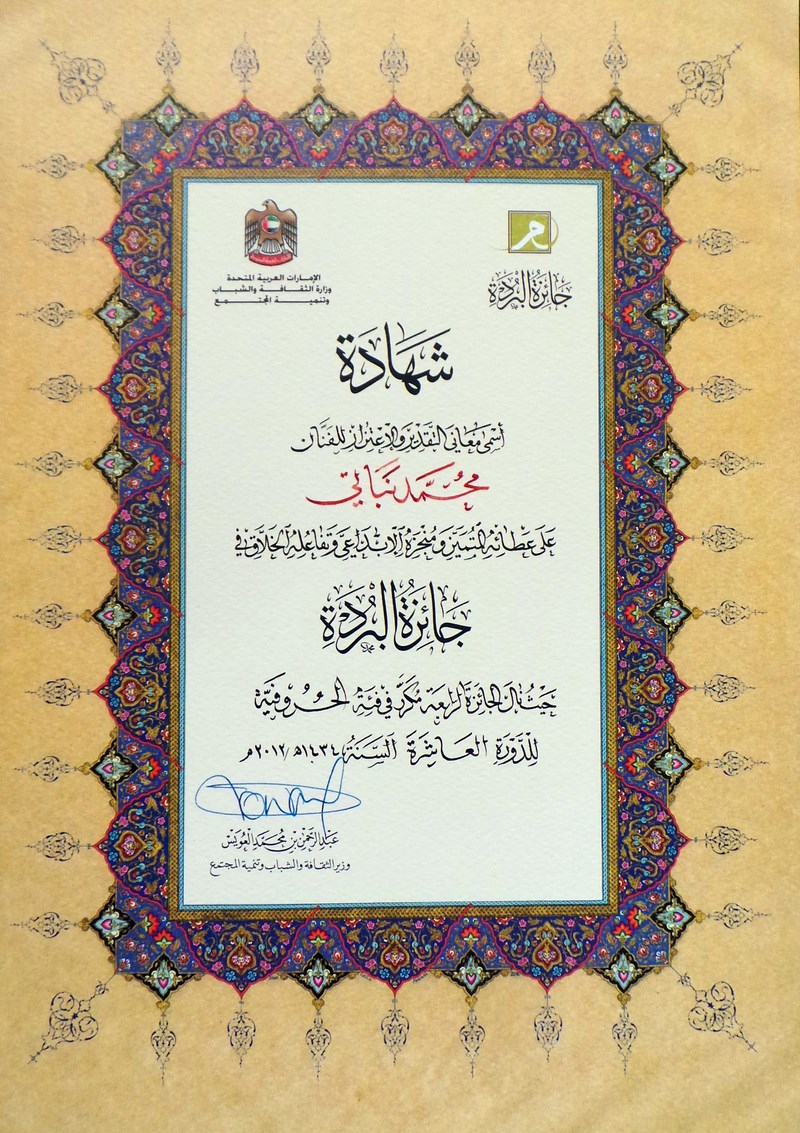 الإمارات العربية المتحدة
وزارة الثقافة والشباب
وتنمية المجتمع
جَائِزَةُ البُرْدَةِ
شَهَادَة
أسمى معاني التقدير والاعتزاز للفنان
محمد نباتي
على عطائه المتميز ومنجزه الإبداعي وتفاعله الخلاق في
جَائِزَةُ البُرْدَةِ
حيث نال الجائزة الرابعة مكرر في فئة الحروفية
للدورة العاشرة السنة ١٤٣٤هـ/٢٠١٢م
عبد الرحمن بن محمد العويس
وزير الثقافة والشباب وتنمية المجتمع